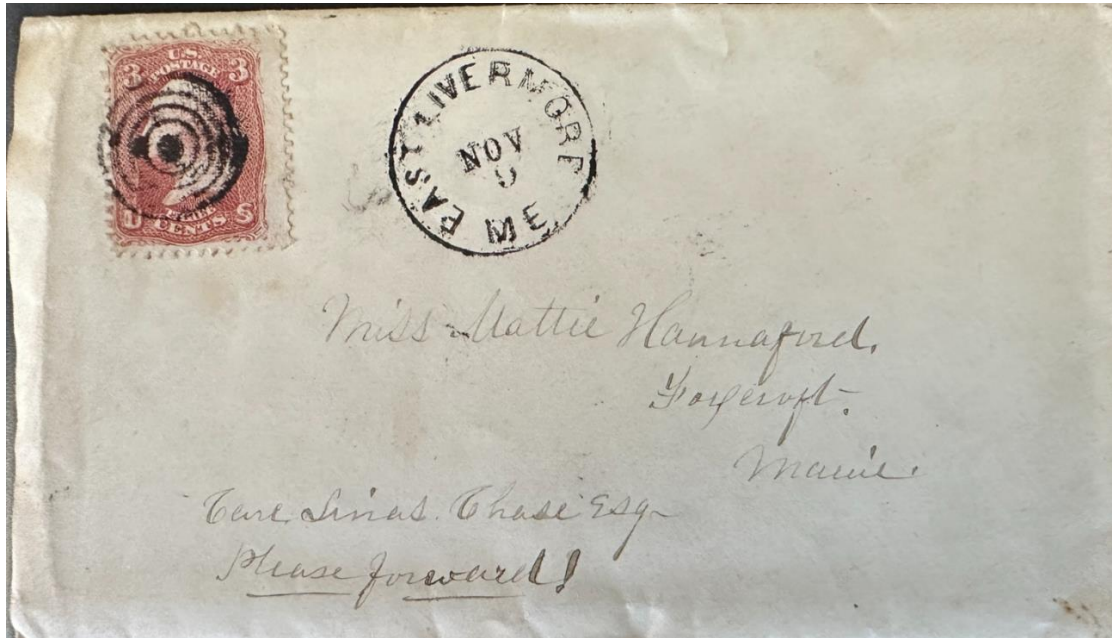 U.S.
POSTAGE
3 3
U S
CENTS
EAST LIVERMORE
NOV
9
ME
Miss Mattie Hannaford.
Foxcroft.
Maine.
Care Linas. Chase Esq
Please forward!